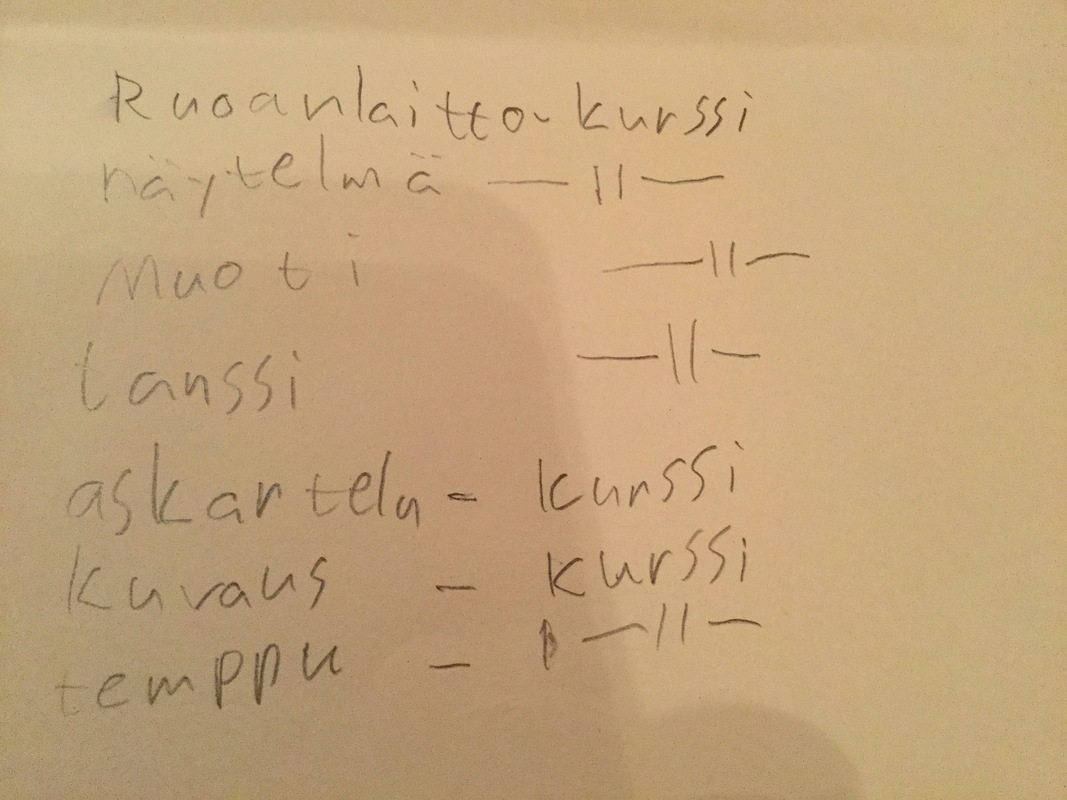 Ruoanlaitto-kurssi
näytelmä —||—
Muoti —||—
tanssi —||—
askartelu - kurssi
kuvaus - kurssi
temppu - —||—